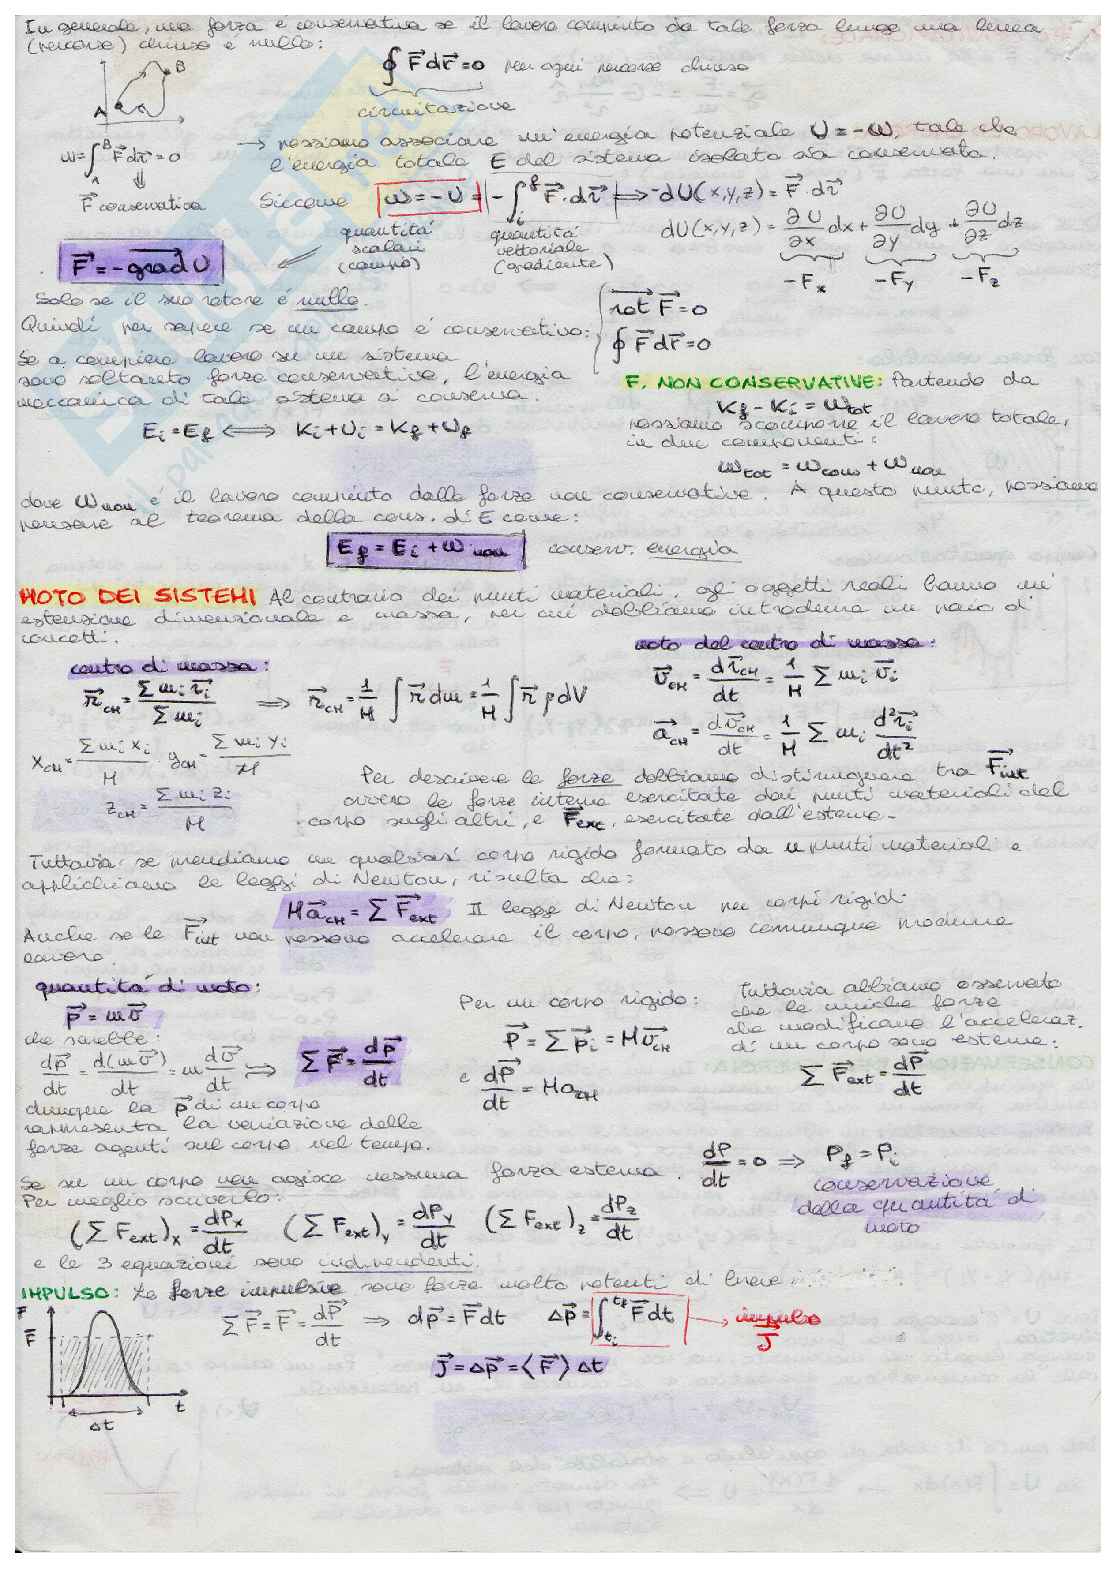 In generale, una forza è conservativa se il lavoro compiuto da tale forza lungo una linea
(percorso) chiuso è nullo:
∮ F⃗ dr⃗ = 0 per ogni percorso chiuso
circuitazione
B
A
w = ∫_A^B F⃗ dr⃗ = 0
⇓
F⃗ conservativa
→ possiamo associare un'energia potenziale U = -w, tale che
l'energia totale E del sistema isolato sia conservata.
Siccome w = -U = -∫_i^f F⃗·dr⃗ ⟹ -dU(x,y,z) = F⃗·dr⃗
quantità scalari (campo)
quantità vettoriale (gradiente)
dU(x,y,z) = ∂U/∂x dx + ∂U/∂y dy + ∂U/∂z dz
-Fx -Fy -Fz
F⃗ = -grad U
Solo se il suo rotore è nullo.
Quindi per sapere se un campo è conservativo:
rot F⃗ = 0
∮ F⃗ dr⃗ = 0
Se a compiere lavoro su un sistema
sono soltanto forze conservative, l'energia
meccanica di tale sistema si conserva.
Ei = Ef ⟺ Ki + Ui = Kf + Uf
F. NON CONSERVATIVE: Partendo da
Kf - Ki = wtot
possiamo scomporre il lavoro totale,
in due componenti:
wtot = wcons + wnon
dove wnon è il lavoro compiuto dalle forze non conservative. A questo punto, possiamo
pensare al teorema della cons. di E come:
Ef = Ei + wnon conserv. energia
MOTO DEI SISTEMI Al contrario dei punti materiali, gli oggetti reali hanno un'
estensione dimensionale e massa, per cui dobbiamo introdurre un paio di
concetti.
centro di massa:
r⃗CM = Σ mi r⃗i / Σ mi ⟹ r⃗CM = 1/M ∫ r⃗ dm = 1/M ∫ r⃗ ρ dV
xCM = Σ mi xi / M yCM = Σ mi yi / M
zCM = Σ mi zi / M
moto del centro di massa:
v⃗CM = dr⃗CM/dt = 1/M Σ mi v⃗i
a⃗CM = dv⃗CM/dt = 1/M Σ mi d²r⃗i/dt²
Per descrivere le forze dobbiamo distinguere tra F⃗int
ovvero le forze interne esercitate dai punti materiali del
corpo sugli altri, e F⃗ext, esercitate dall'esterno.
Tuttavia, se prendiamo un qualsiasi corpo rigido formato da n punti materiali e
applichiamo le leggi di Newton, risulta che:
M a⃗CM = Σ F⃗ext II legge di Newton per corpi rigidi
Anche se le F⃗int non possono accelerare il corpo, possono comunque produrre
lavoro.
quantità di moto:
p⃗ = mv⃗
che sarebbe:
dp⃗/dt = d(mv⃗)/dt = m dv⃗/dt ⟹ Σ F⃗ = dp⃗/dt
dunque la p⃗ di un corpo
rappresenta la variazione delle
forze agenti sul corpo nel tempo.
Per un corpo rigido:
P⃗ = Σ p⃗i = M v⃗CM
e dP⃗/dt = M aCM
Tuttavia abbiamo osservato
che le uniche forze
che modificano l'acceleraz.
di un corpo sono esterne:
Σ F⃗ext = dP⃗/dt
Se su un corpo non agisce nessuna forza esterna. dP/dt = 0 ⟹ Pf = Pi
conservazione
della quantità di
moto
Per meglio scriverlo:
(Σ Fext)x = dPx/dt (Σ Fext)y = dPy/dt (Σ Fext)z = dPz/dt
e le 3 equazioni sono indipendenti.
IMPULSO: Le forze impulsive sono forze molto potenti di breve
Σ F⃗ = F⃗ = dp⃗/dt ⟹ dp⃗ = F⃗ dt Δp⃗ = ∫_ti^tf F⃗ dt → impulso
J⃗
J⃗ = Δp⃗ = ⟨F⃗⟩ Δt
F
F̄
t
Δt